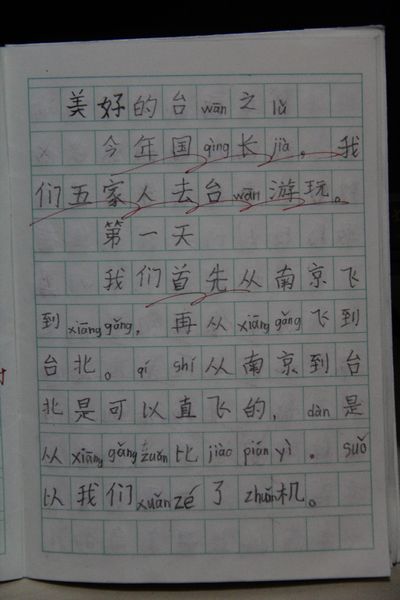 美好的台wān之lǚ
今年国qìng长jià，我
们五家人去台wān游玩。
第一天
我们首先从南京飞
到xiāng gǎng，再从xiāng gǎng飞到
台北。qí shí从南京到台
北是可以直飞的，dàn是
从xiāng gǎng zuǎn比jiào pián yì，suǒ
以我们xuǎn zé了zhuǎn机。